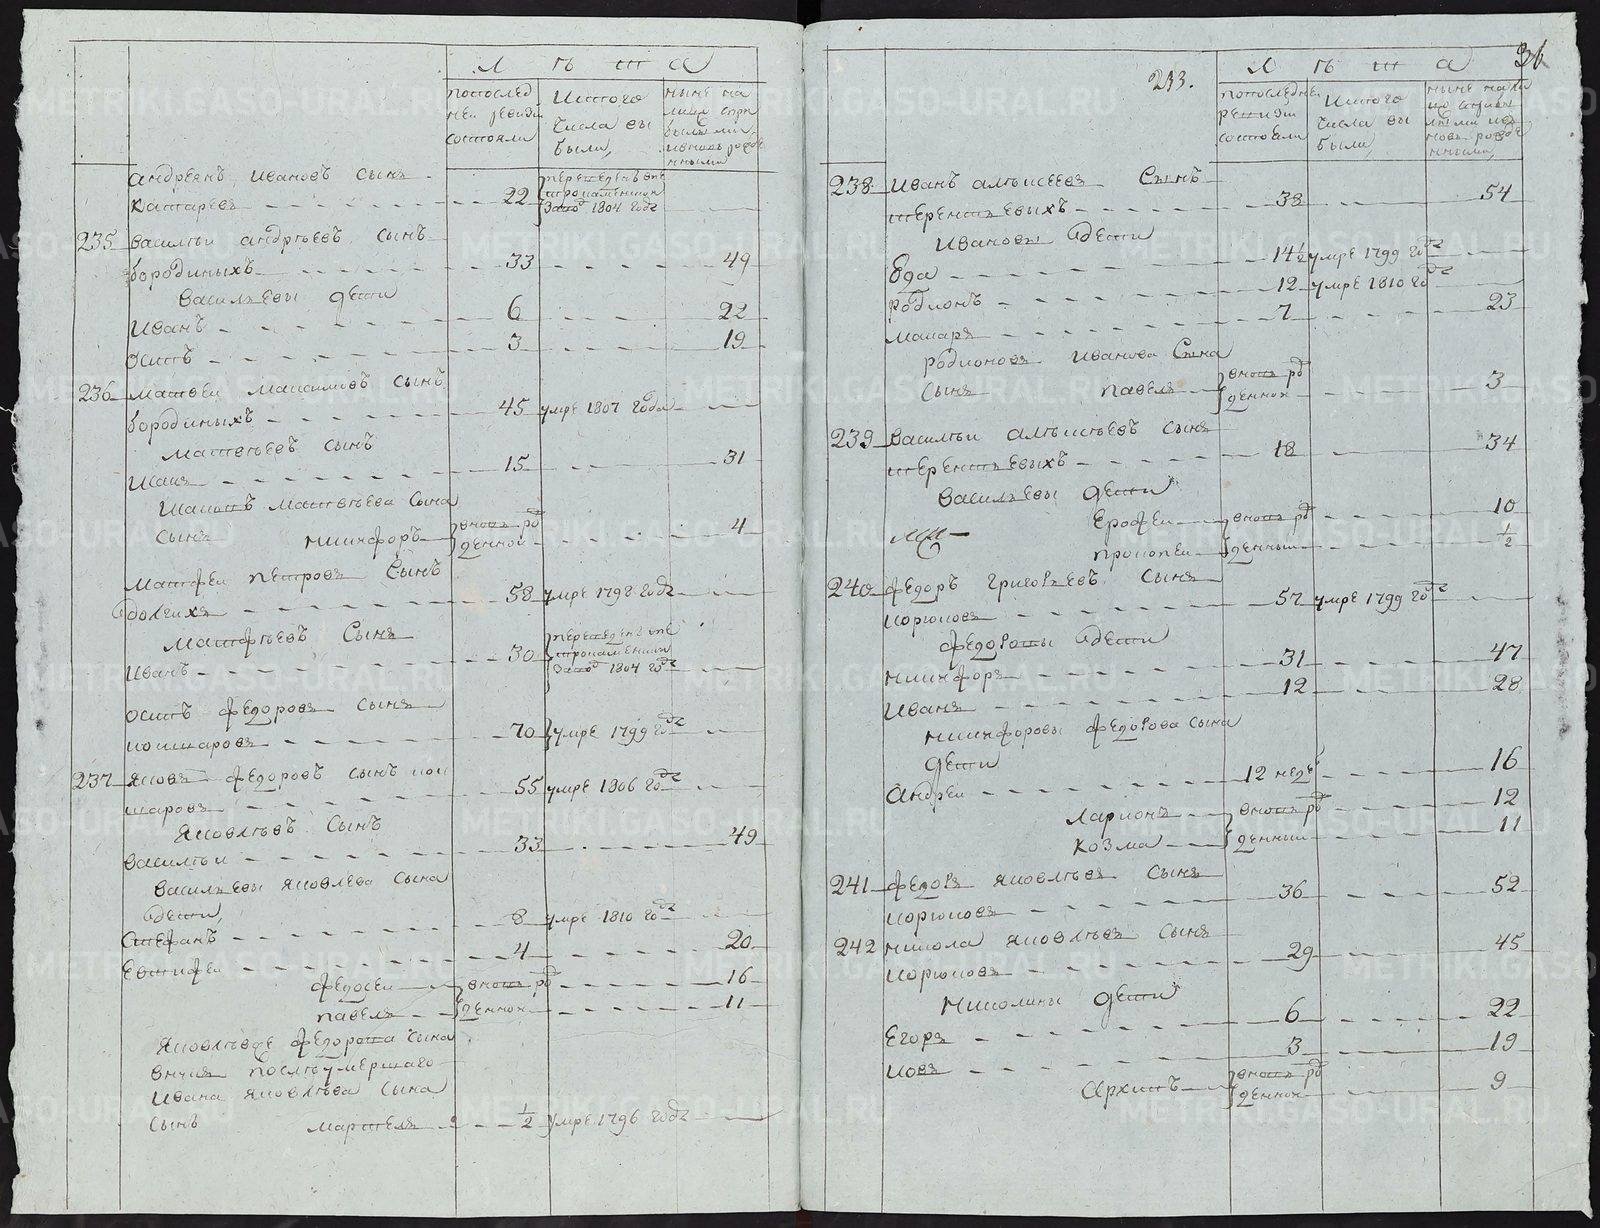 Л ѣ т а
попослед
ней ревизи
состояли
Изтого
числа вы
были,
ныне на
лицо спри
былыми
ивновь рожде
нными
андреянъ ивановъ сынъ
катаревъ 22
переведенъ вне
Завод 1804 годе
235 василѣи андрѣевъ сынъ
бородиныхъ 33 49
василѣевы дети
Иванъ 6 22
осипъ 3 19
236 матвеи максимовъ сынъ
бородиныхъ 45 умре 1807 года
матвѣевъ сынъ
Исакъ 15 31
Исакова матвѣева сына
сынъ никифоръ вновь ро
жденои 4
матфеи петровъ Сынъ
долгихъ 58 умре 1798 годе
матфѣевъ Сынъ
Иванъ 30
переведенъ вне
Завод 1804 годе
осипъ федоровъ сынъ
кошкаровъ 70 умре 1799 годе
237 яковъ федоровъ сынъ кош
каровъ 55 умре 1806 годе
яковлѣвъ сынъ
василѣи 33 49
василѣевы яковлева сына
дети,
Стефанъ 8 умре 1810 годе
Евтифеи 4 20
федосеи вновь ро 16
павелъ жденои 11
яковлѣвже федорова сына
внукъ послѣумершаго
ивана яковлѣва сына
сынъ 1/2 умре 1796 годе
36
233.
Л ѣ т а
попоследне
ревизии
состояли
Изтого
числа вы
были,
238 Иванъ алѣксеевъ Сынъ
терентьевыхъ 38 54
Ивановы дети
Еда 14 1/2 умре 1799 годе
родионъ 12 умре 1810 годе
макаръ 7 23
родионовъ иванова Сына
сынъ павелъ вновь ро
жденои 3
239 василѣи алѣксѣевъ сынъ
терентьевыхъ 18 34
василѣевы дети
Ерофеи вновь ро 10
прокопеи жденыи 1/2
240 федоръ григорьевъ сынъ
корюковъ 57 умре 1799 годе
федоровы дети
никифоръ 31 47
Иванъ 12 28
никифоровы федорова сына
дети
андреи 12 неде 16
Ларионъ вновь ро 12
козма жденыи 11
241 федоръ яковлѣвъ сынъ
корюковъ 36 52
242 никола яковлѣвъ сынъ
корюковъ 29 45
николины дети
Егоръ 6 22
иовъ 3 19
архипъ вновь ро
жденои 9
METRIKI.GASO-URAL.RU